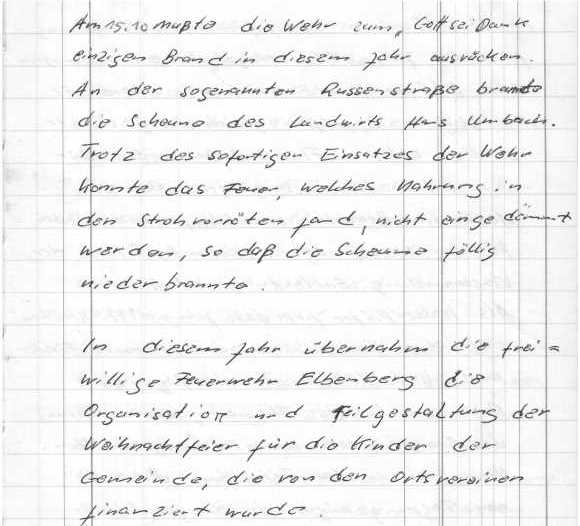 Am 15.10 mußte die Wehr zum, Gott sei Dank
einzigen Brand in diesem Jahr ausrücken.
An der sogenannten Russenstraße brannte
die Scheune des Landwirts Hans Umbach.
Trotz des sofortigen Einsatzes der Wehr
konnte das Feuer, welches Nahrung in
den Strohvorräten fand, nicht eingedämmt
werden, so daß die Scheune föllig
niederbrannte.
In diesem Jahr übernahm die frei=
willige Feuerwehr Elbenberg die
Organisation und Teilgestaltung der
Weihnachtfeier für die Kinder der
Gemeinde, die von den Ortsvereinen
finanziert wurde.